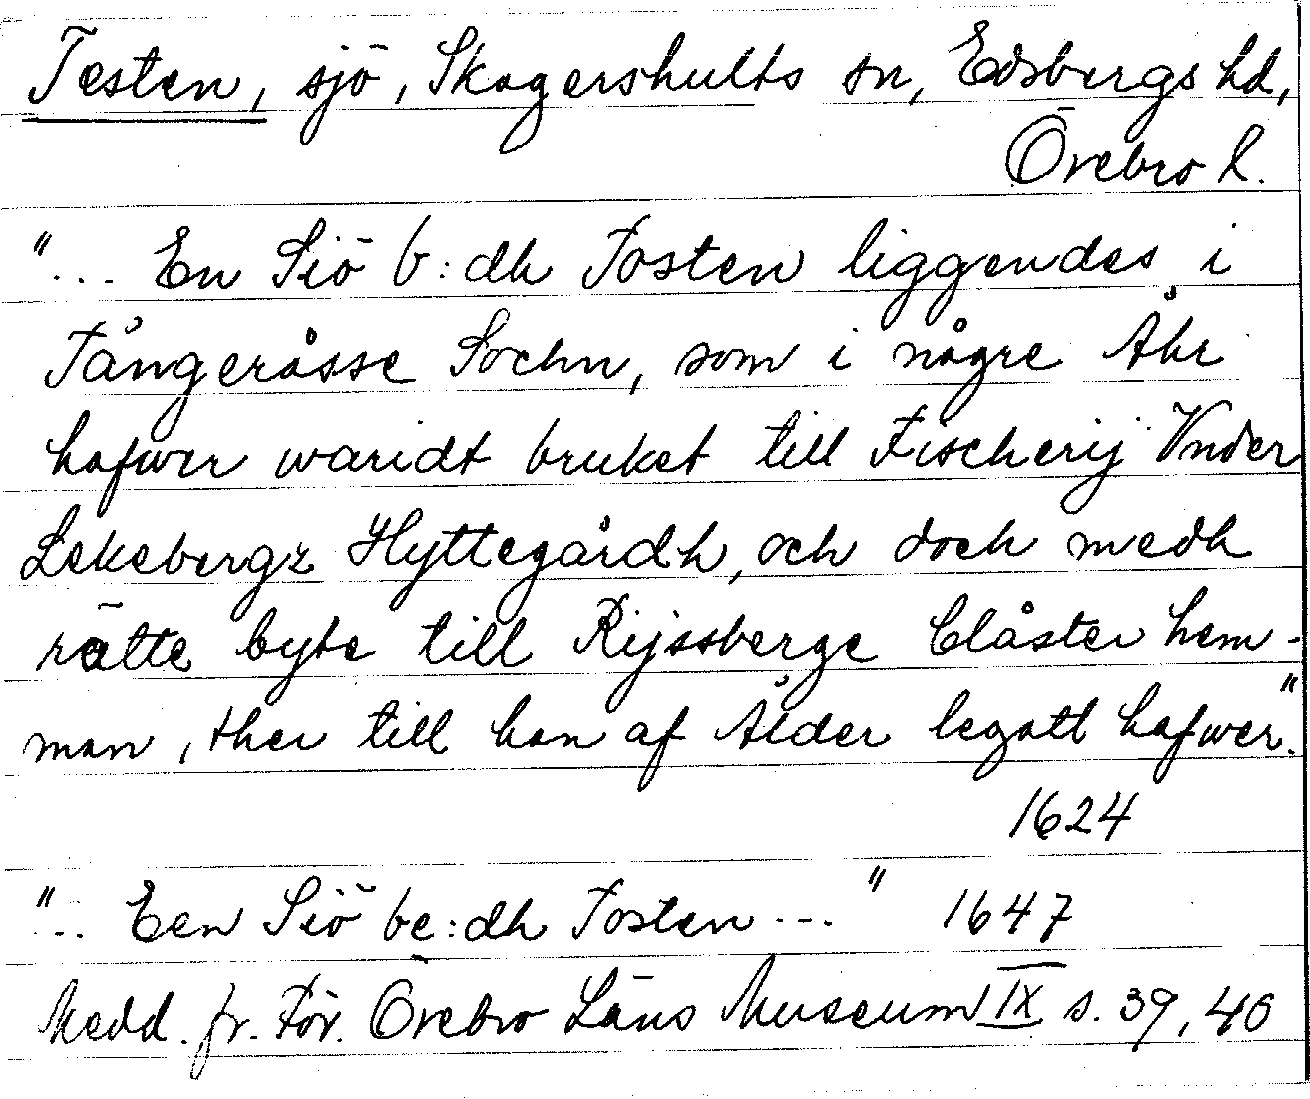 Testen, sjö, Skagershults sn, Edsbergs hd,
Örebro l.
"... En Siö b:dh Tosten liggendes i
Tångeråsse Sochn, som i någre Åhr
hafwer waridt bruket till Fischerij Vnder
Lekebergz Hyttegårdh, och doch medh
rätte byte till Rijssberge Clåster hem-
man, ther till han af Ålder legatt hafwer."
1624
"... Een Siö be:dh Tosten ..." 1647
Medd. fr. För. Örebro Läns Museum IX s. 39, 40